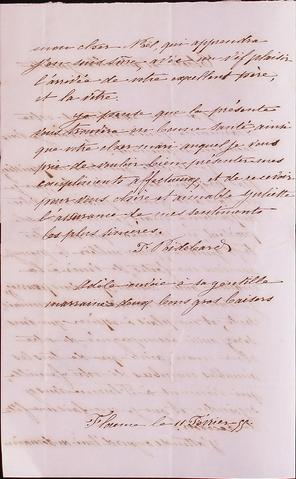 mon cher Noël qui apprendra
j'en suis sûre avec un vif plaisir
l'arrivée de votre excellent père,
et la vôtre.
Je pense que la présente
vous trouvera en bonne santé ainsi
que votre cher mari auquel je vous
prie de vouloir bien présenter mes
compliments affectueux, et de recevoir
pour vous chère et aimable Juliette
l'assurance de mes sentiments
les plus sincères.
Adèle envoie à sa gentille
marraine deux bons gros baisers
le 11 Février